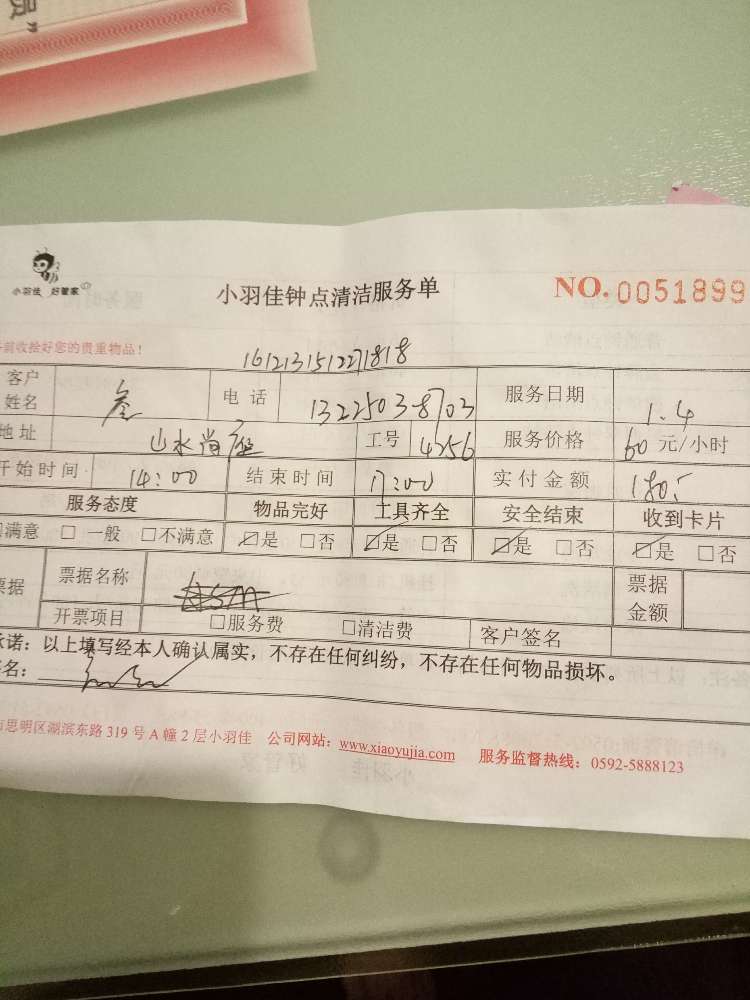 员”
小羽佳 好管家
小羽佳钟点清洁服务单
NO. 0051899
前收拾好您的贵重物品!
1612131512271818
客户姓名 电话 13225038703 服务日期 1.4
地址 山水尚座 工号 4256 服务价格 60 元/小时
开始时间 14:00 结束时间 17:00 实付金额 180.
服务态度 物品完好 工具齐全 安全结束 收到卡片
满意 □ 一般 □不满意 ☑是 □否 ☑是 □否 ☑是 □否 ☑是 □否
票据 票据名称 票据金额
开票项目 □服务费 □清洁费 客户签名
承诺：以上填写经本人确认属实，不存在任何纠纷，不存在任何物品损坏。
签名：
市思明区湖滨东路 319 号 A 幢 2 层小羽佳 公司网站：www.xiaoyujia.com 服务监督热线：0592-5888123